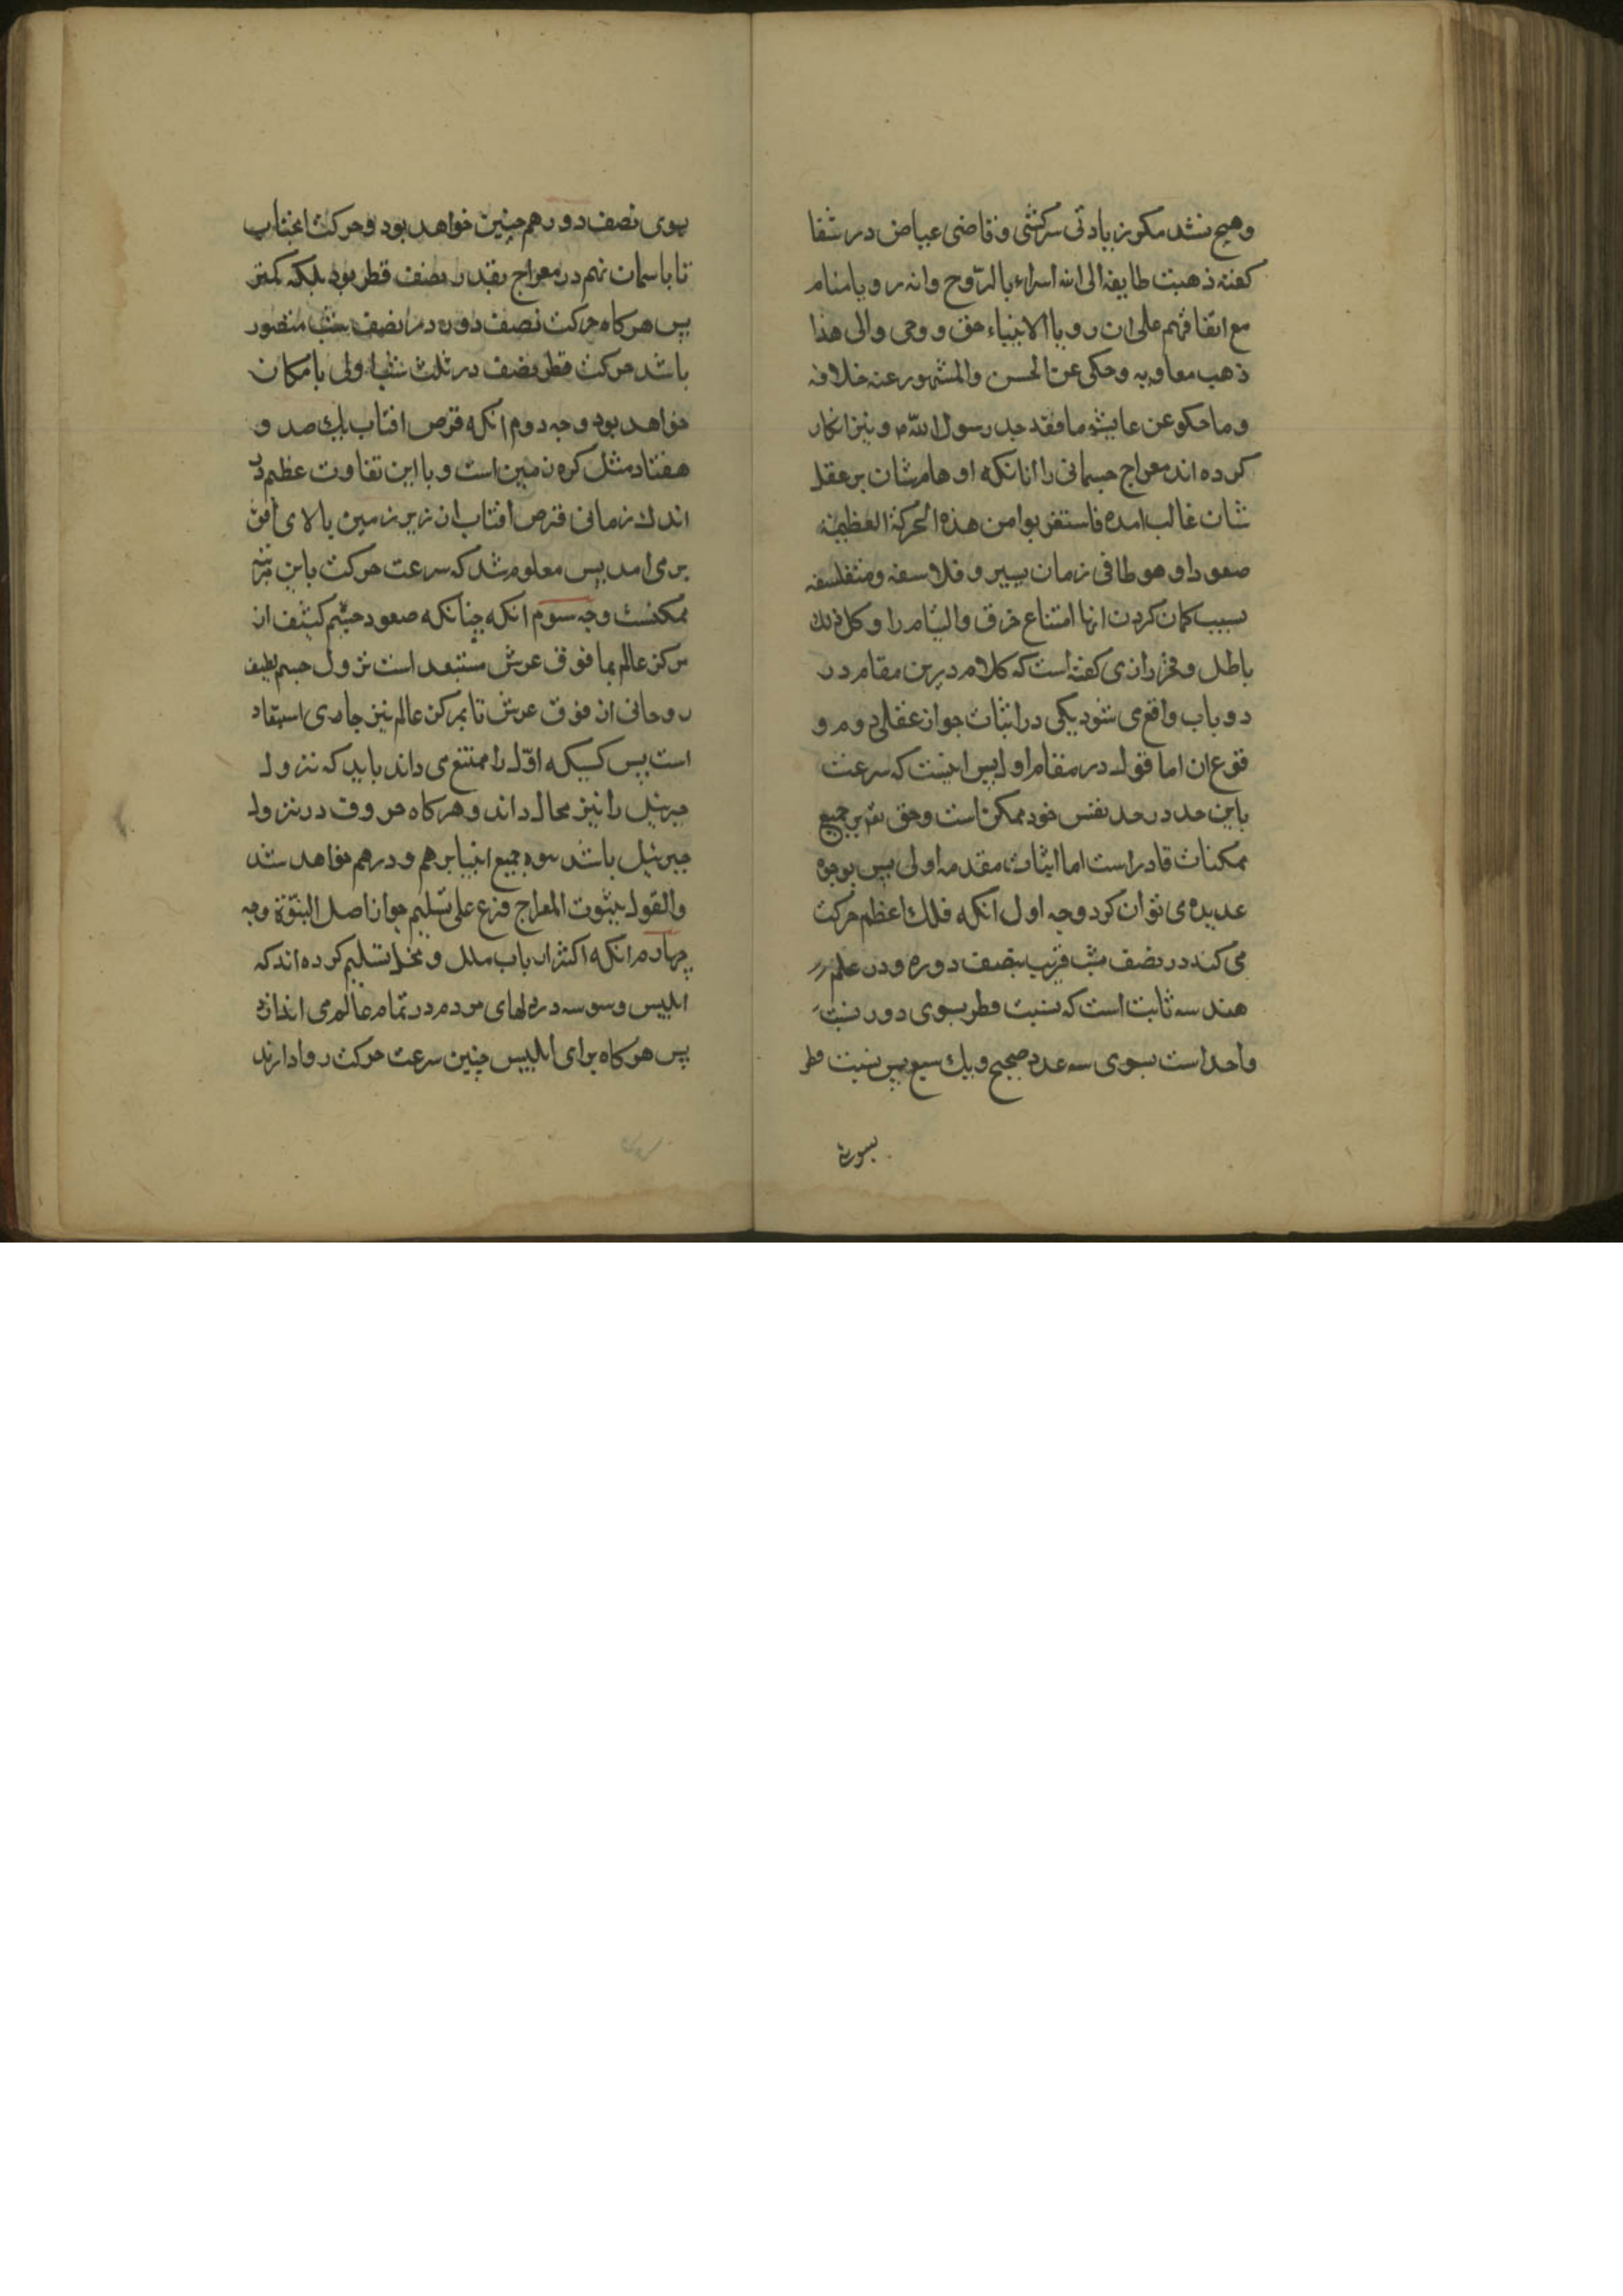 وهیچ نشد مکر زیادتی سرکشی وقاضی عیاض در شفا
کفته ذهبت طایفة الی انه اسراء بالرّوح وانه رویا منام
مع اتفاقهم علی ان رویا الانبیاء حق ووحی والی هذا
ذهب معاویه وحکی عن الحسن والمشهور عنه خلافه
وما حکو عن عایشه ما فقد جسد رسول الله ونیز انکار
کرده اند معراج جسمانی را انانکه اوهامشان بر عقل
شان غالب امده فاستغربوا من هذه الحرکة العظیمة
صعودا وهبوطا فی زمان یسیر وفلاسفه ومتفلسفه
بسبب کمان کردن انها امتناع خرق والتیام را وکل ذلك
باطل وفخر رازی کفته است که کلام درین مقام در
دو باب واقع می شود یکی در اثبات جواز عقلی دوم و
قوع ان اما قول در مقام اول پس اینست که سرعت
باین حد در حد نفس خود ممکن است وحق تع بر جمیع
ممکنات قادر است اما اثبات مقدمه اولی پس بوجوه
عدیده می توان کرد وجه اول انکه فلك اعظم حرکت
می کند در نصف شب قریب بنصف دوره ودر علم
هندسه ثابت است که نسبت قطر بسوی دور نسبت
واحد است بسوی سه عدد صحیح ویك سبع پس نسبت قطر
بسوی نصف دور هم چنین خواهد بود وحرکت انجناب
تا باسمان نهم در معراج بقدر نصف قطر بود بلکه کمتر
پس هرکاه حرکت نصف دوره در نصف شب متصور
باشد حرکت قطر نصف در ثلث شب اولی بامکان
خواهد بود وجه دوم انکه قرص افتاب یك صد و
هفتاد مثل کره زمین است وبا این تفاوت عظیم در
اندك زمانی قرص افتاب از زیر زمین بالای افق
برمی امد پس معلوم شد که سرعت حرکت باین مرتبه
ممکنست وجه سوم انکه چنانکه صعود جسم کثیف از
مرکز عالم بما فوق عرش مستبعد است نزول جسم لطیف
روحانی از فوق عرش تا بمرکز عالم نیز جامی استبعاد
است پس کسیکه اوّل را ممتنع می داند باید که نزول
جبرئیل را نیز محال داند وهرکاه حروف در نزول
جبرئیل باشد نبوة جمیع انبیا برهم ودرهم خواهد شد
والقول بثبوت المعراج فرع علی تسلیم جواز اصل النبوّة وجه
چهارم انکه اکثر ارباب ملل ونحل تسلیم کرده اند که
ابلیس وسوسه در دلهای مردم در تمام عالم می اندازد
پس هرکاه برای ابلیس چنین سرعت حرکت روا دارند